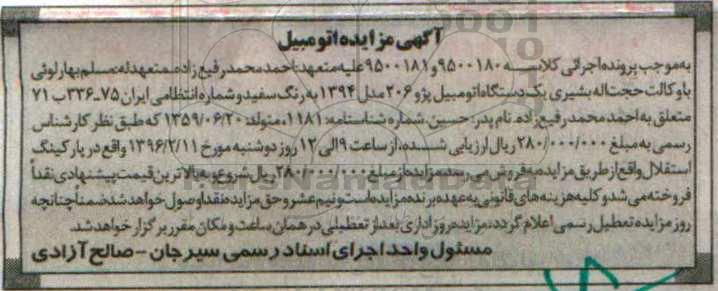 آگهی مزایده اتومبیل
به موجب پرونده اجرائی کلاسه ۹۵۰۰۱۸۰ و ۹۵۰۰۱۸۱ علیه متعهد: احمد محمدرفیع زاده، متعهدله: مسلم بهارلوئی
با وکالت حجت اله بشیری یک دستگاه اتومبیل پژو ۲۰۶ مدل ۱۳۹۴ به رنگ سفید و شماره انتظامی ایران ۷۵-۳۳۶ب۷۱
متعلق به احمد محمدرفیع زاده، نام پدر: حسین، شماره شناسنامه: ۱۱۸۱، متولد: ۱۳۵۹/۰۶/۲۰ که طبق نظر کارشناس
رسمی به مبلغ ۲۸۰/۰۰۰/۰۰۰ ریال ارزیابی شده، از ساعت ۹ الی ۱۲ روز دوشنبه مورخ ۱۳۹۶/۲/۱۱ واقع در پارکینگ
استقلال واقع از طریق مزایده به فروش می رسد. مزایده از مبلغ ۲۸۰/۰۰۰/۰۰۰ ریال شروع و به بالاترین قیمت پیشنهادی نقداً
فروخته می شود و کلیه هزینه های قانونی به عهده برنده مزایده است و نیم عشر و حق مزایده نقداً وصول خواهد شد. ضمناً چنانچه
روز مزایده تعطیل رسمی اعلام گردد، مزایده روز اداری بعد از تعطیلی در همان ساعت و مکان مقرر برگزار خواهد شد.
مسئول واحد اجرای اسناد رسمی سیرجان - صالح آزادی